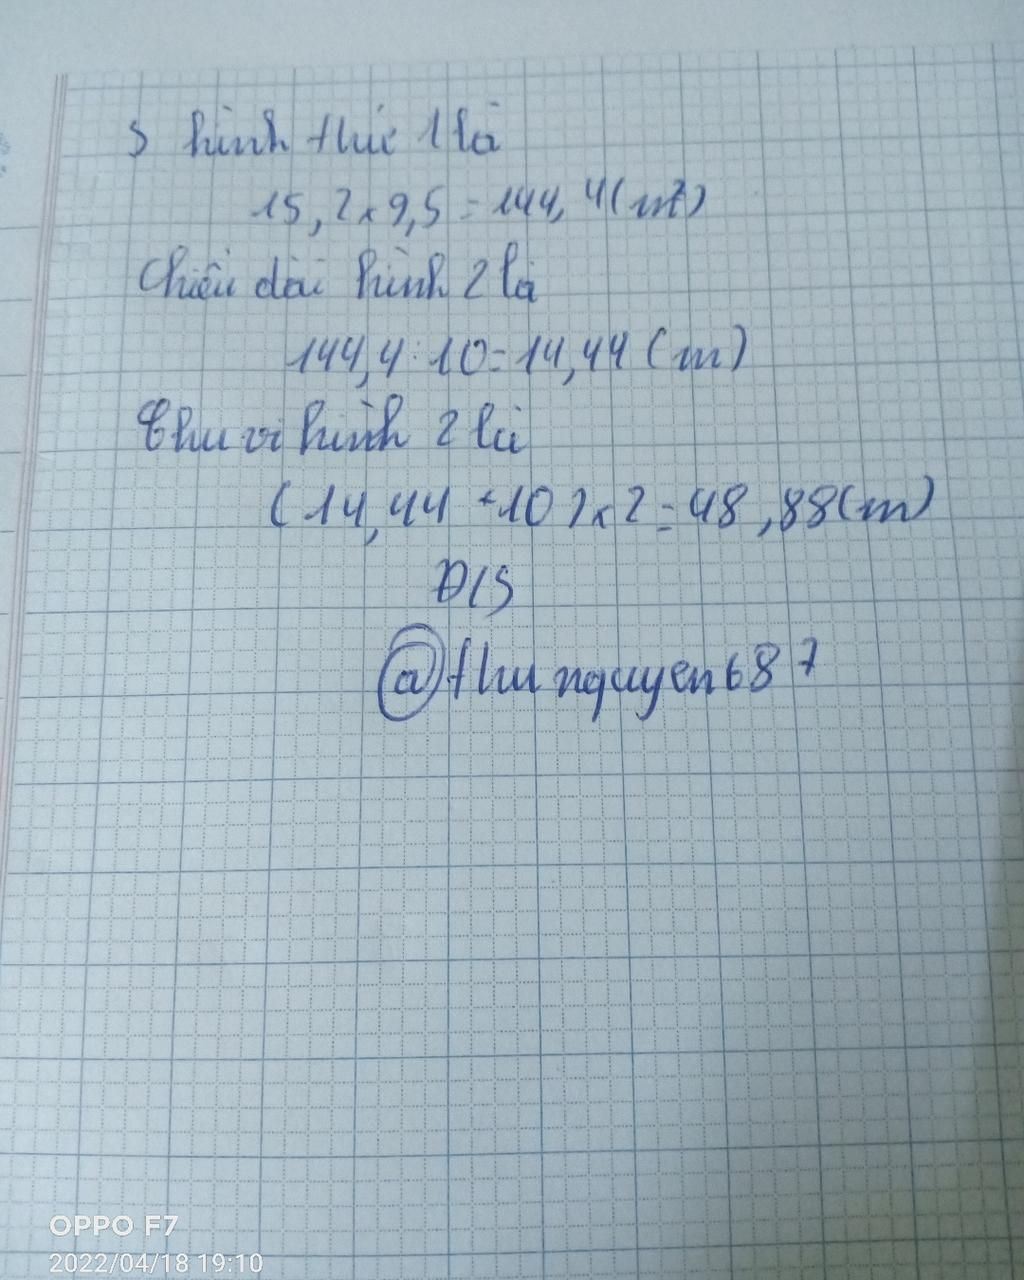 S hình thức 1 là
15,2 x 9,5 = 144,4 (m²)
Chiều dài hình 2 là
144,4 : 10 = 14,44 (m)
Chu vi hình 2 là
(14,44 + 10) x 2 = 48,88 (m)
Đ/S
@thunguyen687
OPPO F7
2022/04/18 19:10